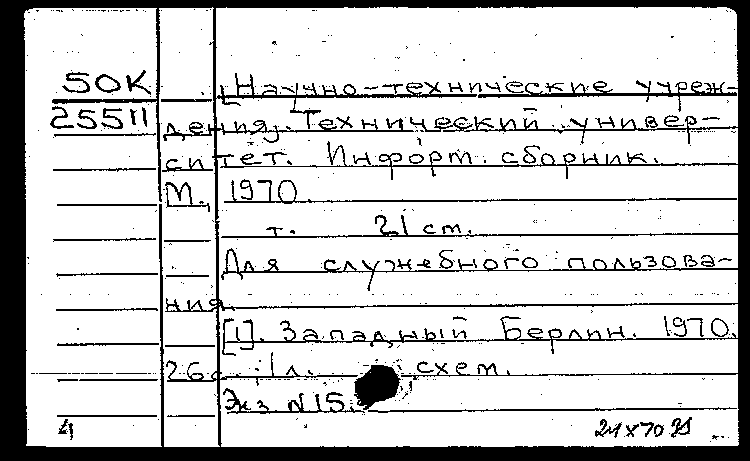 50К [Научно-технические учреж-
25511 дения]. Технический универ-
ситет. Информ. сборник.
М., 1970.
т. 21 cm.
Для служебного пользова-
ния.
[1]. Западный Берлин. 1970.
26с., 1л. схем.
Экз N15.
4